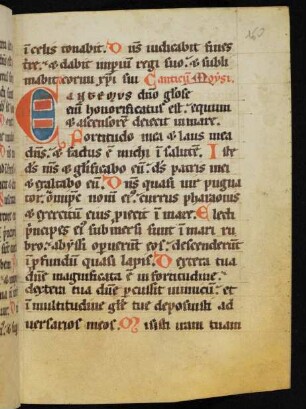 160
in celis tonabit. Dn̄s iudicabit fines
tre. & dabit imp̄ium regi suo. & subli
mabit cornu xp̄i sui Canticū Moysi.
Cantemus dn̄o gl̄ose
eni honorificatus est. equum
& ascensorē deiecit in mare.
Fortitudo mea & laus mea
dn̄s. & factus ē michi in salutē. Iste
ds̄ m̄s & glificabo eū. ds̄ patris mei
& exaltabo eū. Dn̄s quasi uir pugna
tor. om̄pc̄ nom̄ ei. currus pharaonis
& exercitū eius, p̄iecit in mare. Electi
p̄ncipes ei submersi sunt in mari ru
bro. abyssi opuerunt eos. descenderūt
in p̄fundū quasi lapis. Dextera tua
dn̄e magnificata ē in fortitudine.
dext̄ra tua dn̄e p̄cussit inimicū. et
in multitudine gl̄e tue deposuisti ad
uersarios meos. Misisti iram tuam